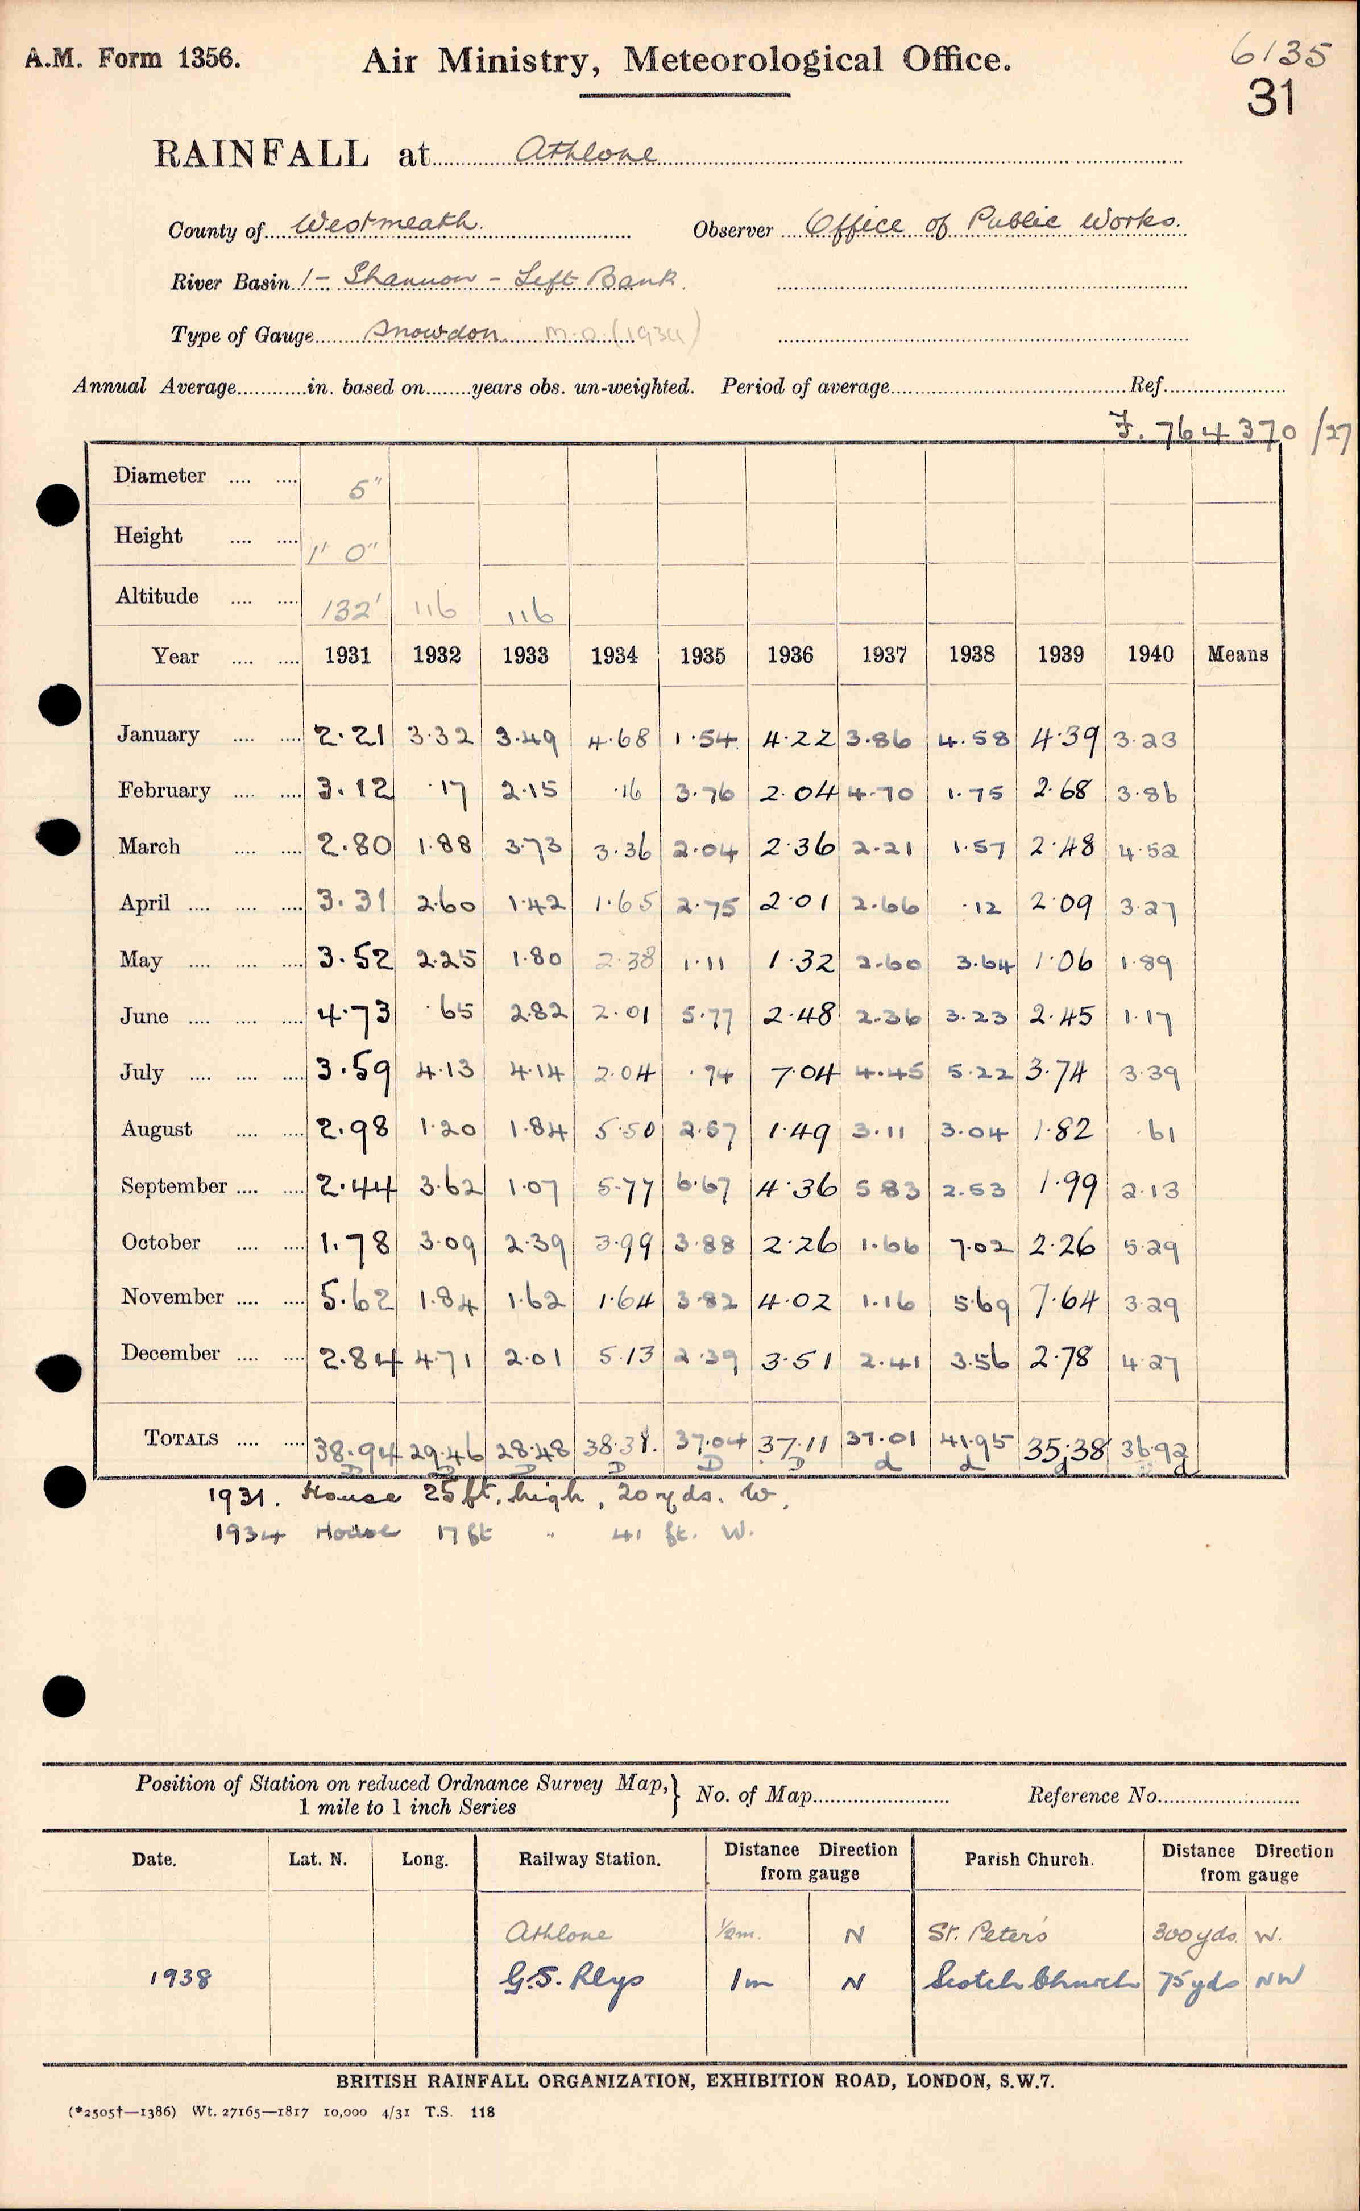 A.M. Form 1356. Air Ministry, Meteorological Office. 6135
31
RAINFALL at Athlone
County of Westmeath. Observer Office of Public Works.
River Basin 1 - Shannon - Left Bank.
Type of Gauge Snowdon M.O. (1934)
Annual Average............in. based on........years obs. un-weighted. Period of average.......... Ref..........
F. 764370/27
Diameter .... .... 5"
Height .... .... 1' 0"
Altitude .... .... 132' 116 116
Year .... .... 1931 1932 1933 1934 1935 1936 1937 1938 1939 1940 Means
January .... .... 2.21 3.32 3.49 4.68 1.54 4.22 3.86 4.58 4.39 3.23
February .... .... 3.12 .17 2.15 .16 3.76 2.04 4.70 1.75 2.68 3.86
March .... .... 2.80 1.88 3.73 3.36 2.04 2.36 2.21 1.57 2.48 4.52
April .... .... .... 3.31 2.60 1.42 1.65 2.75 2.01 2.66 .12 2.09 3.27
May .... .... .... 3.52 2.25 1.80 2.38 1.11 1.32 2.60 3.64 1.06 1.89
June .... .... .... 4.73 .65 2.82 2.01 5.77 2.48 2.36 3.23 2.45 1.17
July .... .... .... 3.59 4.13 4.14 2.04 .74 7.04 4.45 5.22 3.74 3.39
August .... .... 2.98 1.20 1.84 5.50 2.57 1.49 3.11 3.04 1.82 .61
September .... .... 2.44 3.62 1.07 5.77 6.67 4.36 5.83 2.53 1.99 2.13
October .... .... 1.78 3.09 2.39 3.99 3.88 2.26 1.66 7.02 2.26 5.29
November .... .... 5.62 1.84 1.62 1.64 3.82 4.02 1.16 5.69 7.64 3.29
December .... .... 2.84 4.71 2.01 5.13 2.39 3.51 2.41 3.56 2.78 4.27
TOTALS .... .... 38.94 29.46 28.48 38.31. 37.04 37.11 37.01 41.95 35.38 36.92
D D D D D D d d d d
1931. House 25 ft. high, 20 yds. W.
1934 House 17 ft " 41 ft. W.
Position of Station on reduced Ordnance Survey Map,} No. of Map.......... Reference No..........
1 mile to 1 inch Series
Date. Lat. N. Long. Railway Station. Distance Direction from gauge Parish Church. Distance Direction from gauge
Athlone ½m. N St. Peter's 300 yds. W.
1938 G.S. Rlys 1m N Scotch Church 75 yds NW
BRITISH RAINFALL ORGANIZATION, EXHIBITION ROAD, LONDON, S.W.7.
(*2505†—1386) Wt. 27165—1817 10,000 4/31 T.S. 118